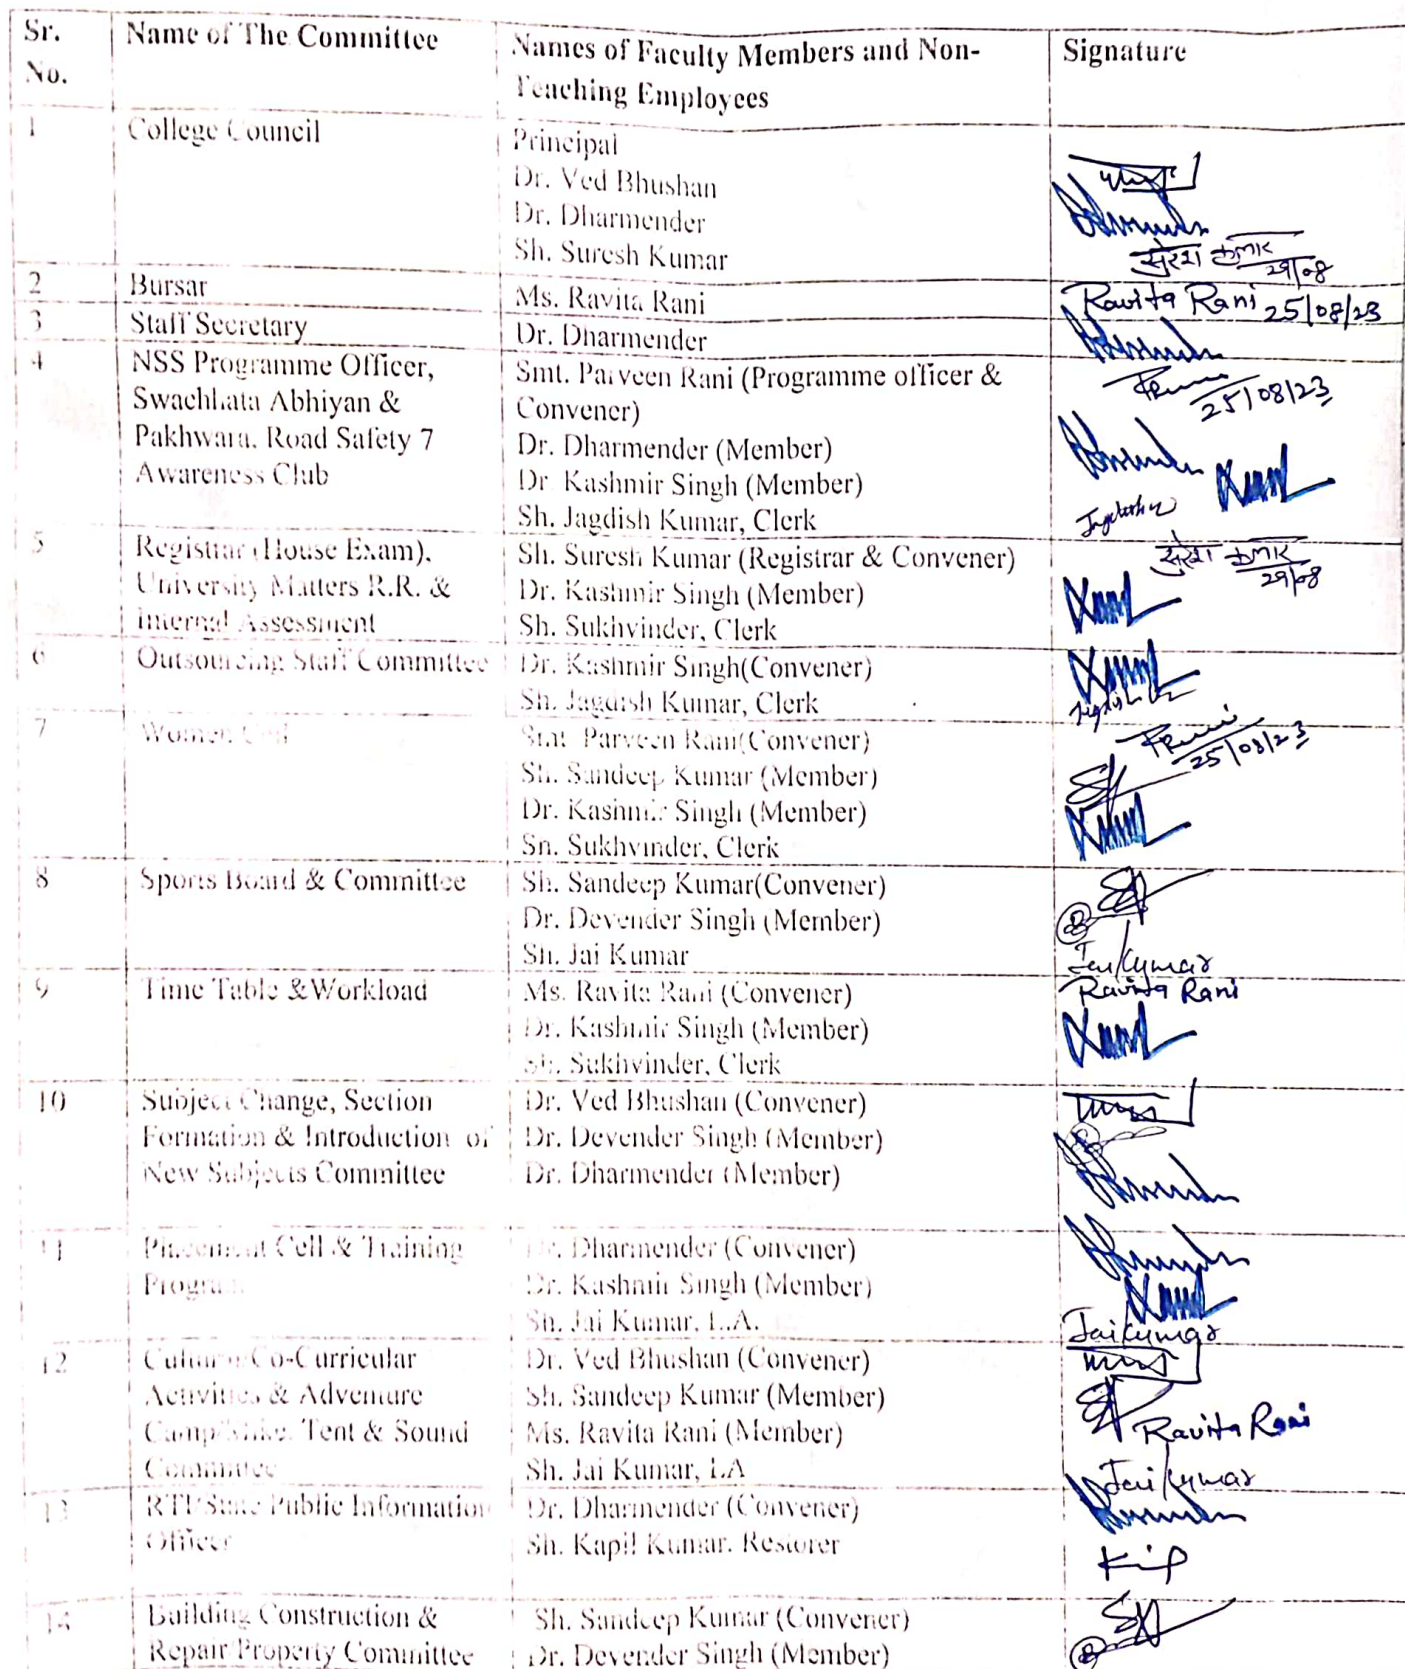 Sr. No.
Name of The Committee
Names of Faculty Members and Non-
Teaching Employees
Signature
1
College Council
Principal
Dr. Ved Bhushan
Dr. Dharmender
Sh. Suresh Kumar
सुरेश कुमार
29/08
2
Bursar
Ms. Ravita Rani
Ravita Rani 25/08/23
3
Staff Secretary
Dr. Dharmender
4
NSS Programme Officer,
Swachhata Abhiyan &
Pakhwara, Road Safety 7
Awareness Club
Smt. Parveen Rani (Programme officer &
Convener)
Dr. Dharmender (Member)
Dr. Kashmir Singh (Member)
Sh. Jagdish Kumar, Clerk
25/08/23
5
Registrar (House Exam),
University Matters R.R. &
Internal Assessment
Sh. Suresh Kumar (Registrar & Convener)
Dr. Kashmir Singh (Member)
Sh. Sukhvinder, Clerk
सुरेश कुमार
29/08
6
Outsourcing Staff Committee
Dr. Kashmir Singh(Convener)
Sh. Jagdish Kumar, Clerk
7
Women Cell
Smt. Parveen Rani(Convener)
Sh. Sandeep Kumar (Member)
Dr. Kashmir Singh (Member)
Sh. Sukhvinder, Clerk
25/08/23
8
Sports Board & Committee
Sh. Sandeep Kumar(Convener)
Dr. Devender Singh (Member)
Sh. Jai Kumar
Jai Kumar
9
Time Table &Workload
Ms. Ravita Rani (Convener)
Dr. Kashmir Singh (Member)
Sh. Sukhvinder, Clerk
Ravita Rani
10
Subject Change, Section
Formation & Introduction of
New Subjects Committee
Dr. Ved Bhushan (Convener)
Dr. Devender Singh (Member)
Dr. Dharmender (Member)
11
Placement Cell & Training
Program
Dr. Dharmender (Convener)
Dr. Kashmir Singh (Member)
Sh. Jai Kumar, L.A.
Jai Kumar
12
Co-Curricular
Activities & Adventure
Tent & Sound
Committee
Dr. Ved Bhushan (Convener)
Sh. Sandeep Kumar (Member)
Ms. Ravita Rani (Member)
Sh. Jai Kumar, LA
Ravita Rani
Jai Kumar
13
RTI/State Public Information
Officer
Dr. Dharmender (Convener)
Sh. Kapil Kumar, Restorer
14
Building Construction &
Repair Property Committee
Sh. Sandeep Kumar (Convener)
Dr. Devender Singh (Member)